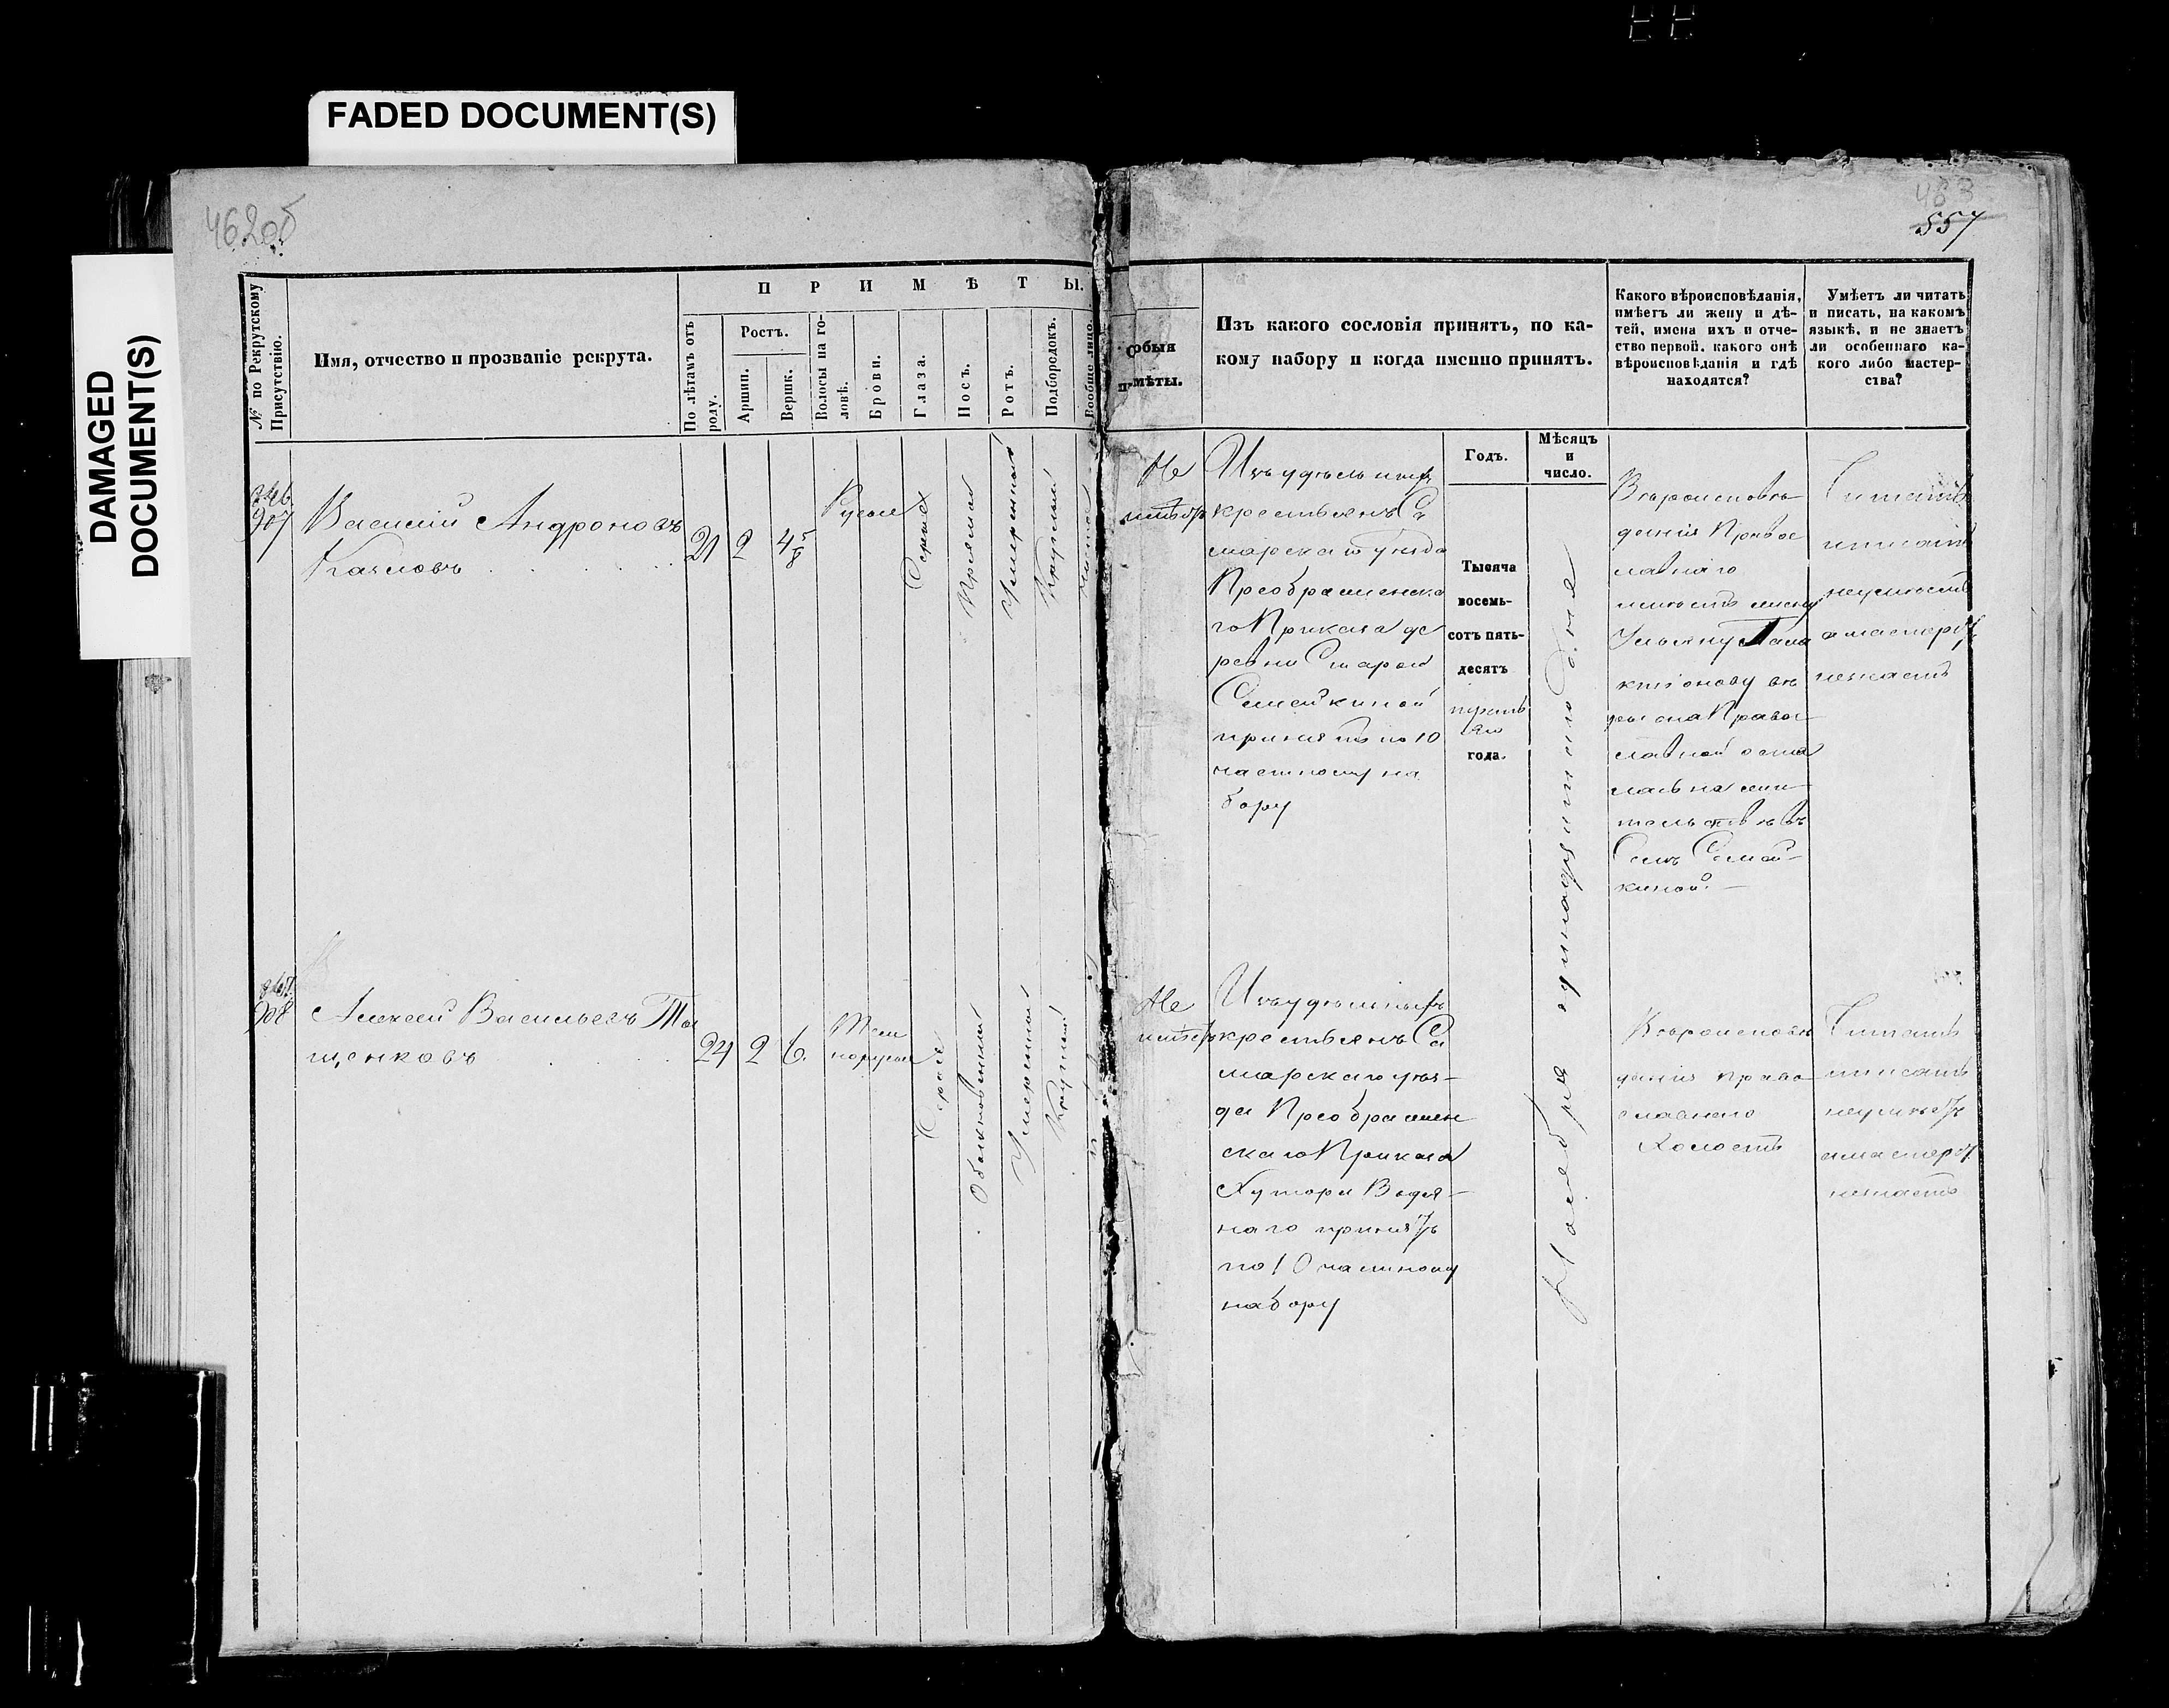 FADED DOCUMENT(S)
DAMAGED
DOCUMENT(S)
462об
463
557
№ по Рекрутскому
Присутствію.
Имя, отчество и прозваніе рекрута.
ПРИМѢТЫ.
По лѣтамъ отъ
роду.
Ростъ.
Аршин.
Вершк.
Волосы на го-
ловѣ.
Брови.
Глаза.
Носъ.
Ротъ.
Подбородокъ.
Вообще лицо.
собыя
мѣты.
Изъ какого сословія принятъ, по ка-
кому набору и когда именно принятъ.
Какого вѣроисповѣданія,
имѣетъ ли жену и дѣ-
тей, имена ихъ и отче-
ство первой, какого онѣ
вѣроисповѣданія и гдѣ
находятся?
Умѣетъ ли читать
и писать, на какомъ
языкѣ, и не знаетъ
ли особеннаго ка-
кого либо мастер-
ства?
Годъ.
Мѣсяцъ
и
число.
907
Василій Андроновъ
21
2
4 5/8
Русые
Серые
Прямой
Умеренный
Круглый
Не
имѣетъ
Изъ удельныхъ
крестьянъ Са
марскаго уезда
Преображенска
го Приказа де
ревни Старой
Семейкиной
принятъ по 10
частному на
бору
Тысяча
восемь-
сотъ пять-
десятъ
года.
Ноября одинадцатого дня
Вѣроисповѣ
данія Правос
лавнаго
имѣетъ жену
Ульяну
вѣ
ры она Правос
лавной оста
лась на жи
тельствѣ въ
Селѣ Семей-
киной.
Читать
писать
неумѣетъ
а мастерст
незнаетъ
908
Алексей Васильевъ То
щенковъ
24
2
6.
Тем
норусые
Серые
Обыкновенный
Умеренный
Круглый
Не
имѣетъ
Изъ удѣльныхъ
крестьянъ Са
марскаго уѣз-
да Преображен
скаго Приказа
Хутора Водя-
наго принятъ
по 10 частному
набору
Вѣроисповѣ
данія право
славнаго
Холостъ
Читать
писать
неумѣетъ
амастерст
незнаетъ